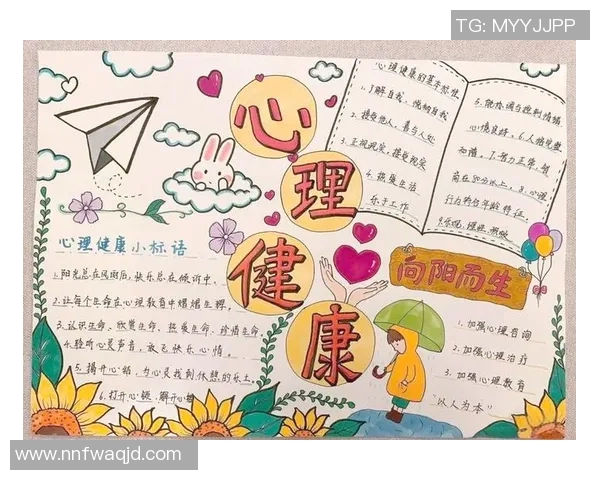 TG: MYYJJPP
心理健康
心理健康的基本标准
1.了解自我、悦纳自我
2.接受他人，善与人处
3.正视现实，接受现实
4.热爱生活
乐于工作
5.能协调与控制情绪
心境良好。6.人格完整
和谐。7.智力正常，智
商在80分以上。8.心理
行为符合年龄特征。
心理健康小标语
1.阳光总在风雨后，快乐总在倾诉中。
2.让每个生命在心理教育中熠熠生辉。
3.认识生命、欣赏生命、热爱生命、珍惜生命。
4.聆听心灵声音，放飞快乐心情。
5.揭开心结，为心灵找到休憩的乐土。
6.打开心锁，解开心
向阳而生
1.加强心理咨询
2.加强心理治疗
3.加强心理教育
"以人为本"
www.nnfwaqjd.com